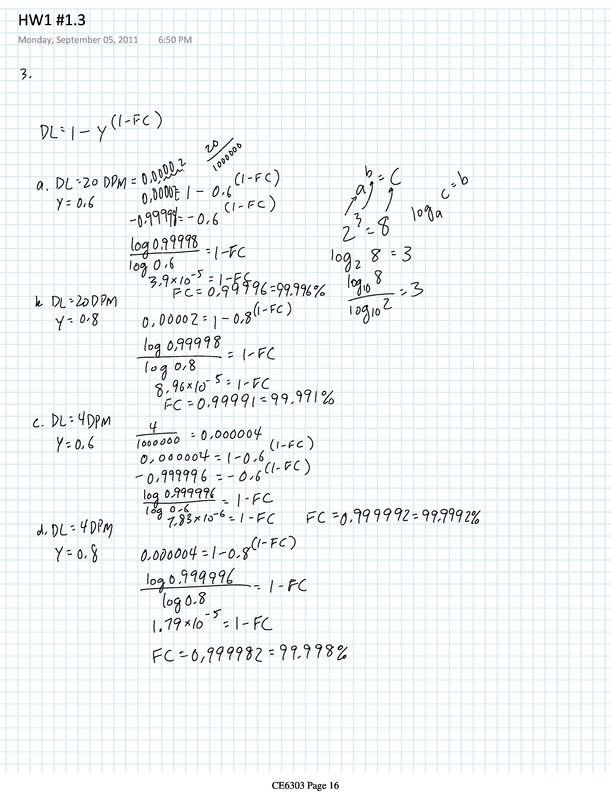 HW1 #1.3
Monday, September 05, 2011 6:50 PM
3.
DL = 1 - Y^(1-FC)
20/1000000
a. DL=20 DPM = 0.00002
Y = 0.6
0.00002 = 1 - 0.6^(1-FC)
-0.99998 = -0.6^(1-FC)
log 0.99998 / log 0.6 = 1-FC
3.9×10^-5 = 1-FC
FC = 0.99996 = 99.996%
a^b = c
log_a c = b
2^3 = 8
log_2 8 = 3
log_10 8 / log_10 2 = 3
b. DL=20DPM
Y = 0.8
0.00002 = 1 - 0.8^(1-FC)
log 0.99998 / log 0.8 = 1-FC
8.96×10^-5 = 1-FC
FC = 0.99991 = 99.991%
c. DL=4DPM
Y=0.6
4/1000000 = 0.000004
0.000004 = 1-0.6^(1-FC)
-0.999996 = -0.6^(1-FC)
log 0.999996 / log 0.6 = 1-FC
7.83×10^-6 = 1-FC FC = 0.999992 = 99.9992%
d. DL = 4DPM
Y = 0.8
0.000004 = 1-0.8^(1-FC)
log 0.999996 / log 0.8 = 1-FC
1.79×10^-5 = 1-FC
FC = 0.999982 = 99.998%
CE6303 Page 16